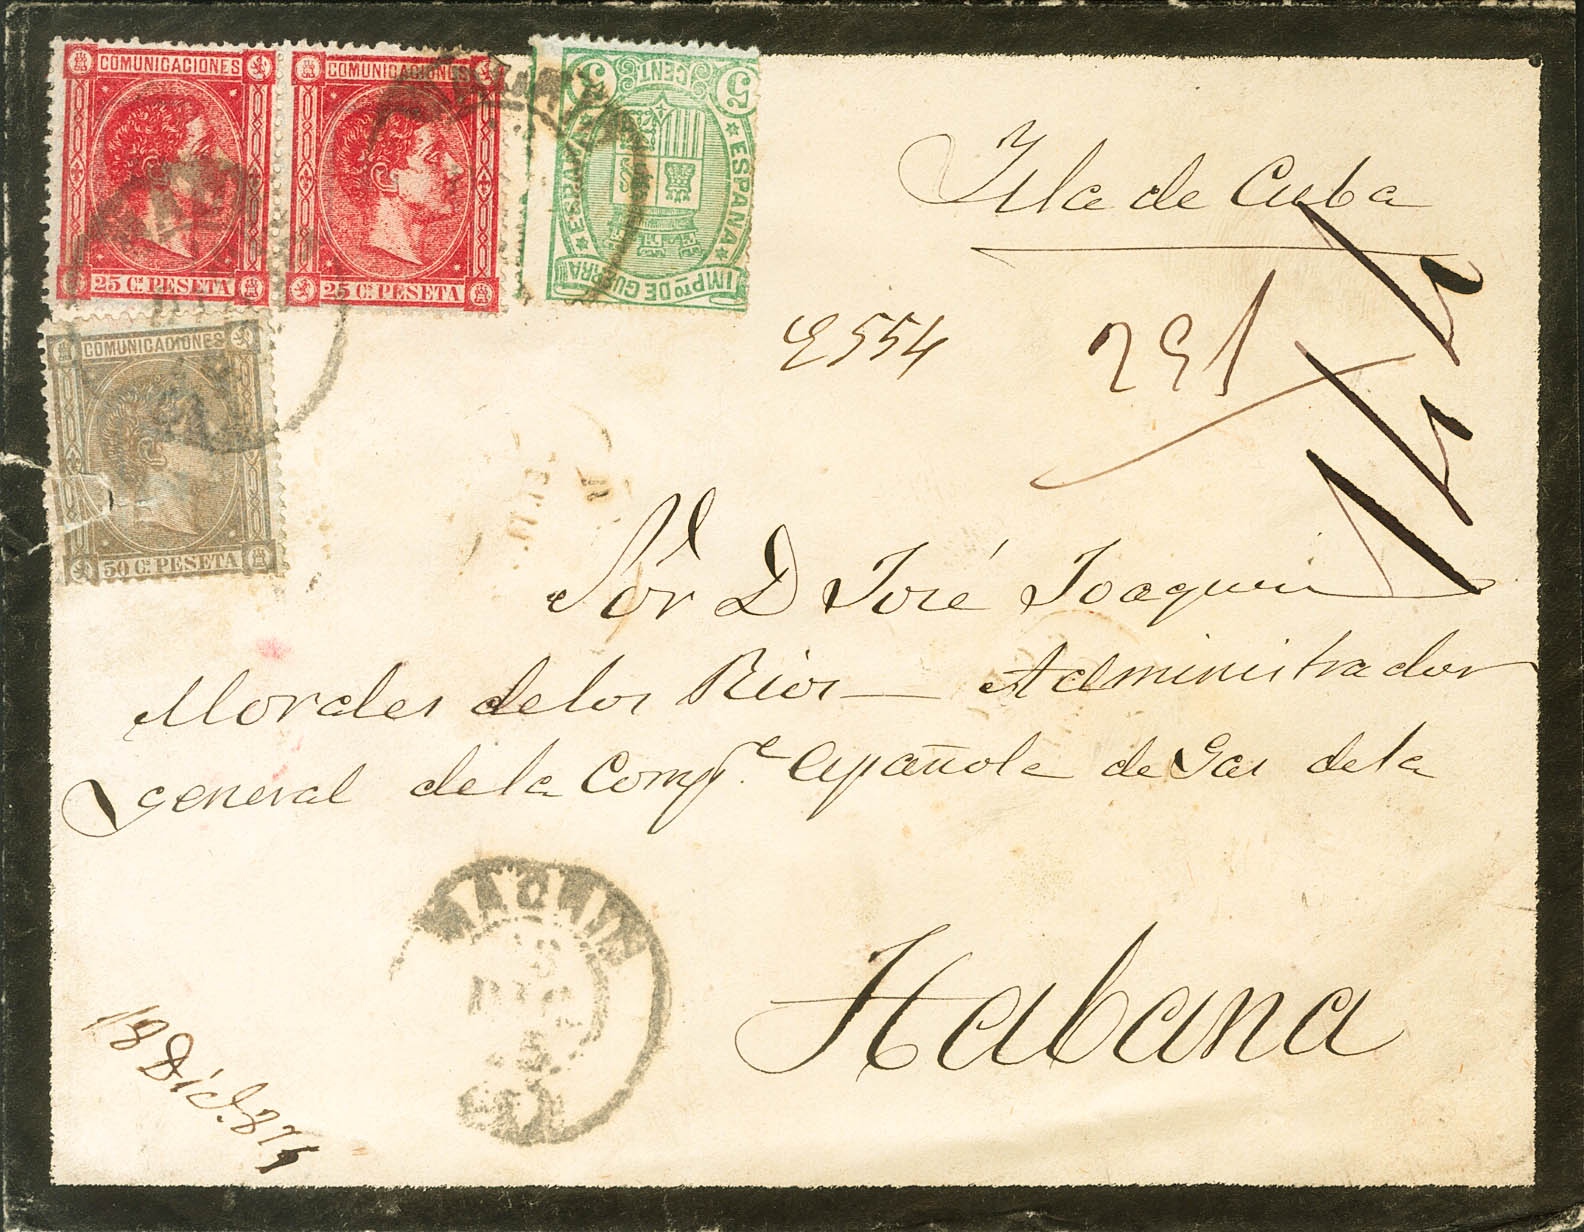 COMUNICACIONES
25 Cs PESETA
COMUNICACIONES
25 Cs PESETA
5 CENT. 5
ESPAÑA ESPAÑA
IMPTO DE GUERRA
COMUNICACIONES
50 Cs PESETA
Isla de Cuba
554
291
Sor. D José Joaquin
Morales de los Rios — Administrador
general de la Compe. Española de Gas de la
Habana
MADRID
18
DIC
18 Dic. 875